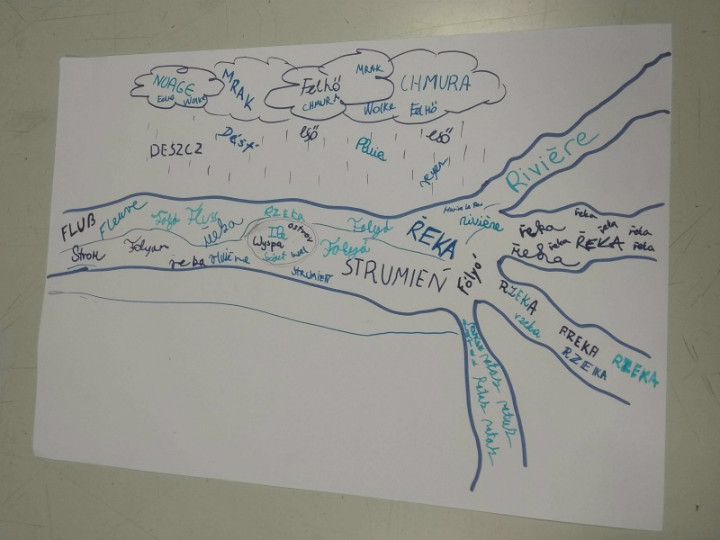 NUAGE
Felhő Wolke
MRAK
Felhő
CHMURA
MRAK
CHMURA
Wolke Felhő
DESZCZ
Déšť
eső
Pluie
eső
regen
FLUß
Fleuve
Fluss
řeka
RZEKA
Île
ostrov
Wyspa
Folyó
Folyó
ŘEKA
rivière
Rivière
Strom
Folyam
řeka
rivière
STRUMIEŃ
STRUMIEŃ
Folyó
řeka
ŘEKA
řeka
řeka
ŘEKA
řeka
řeka
řeka
RZEKA
rzeka
RZEKA
RZEKA
patak
patak
patak
patak